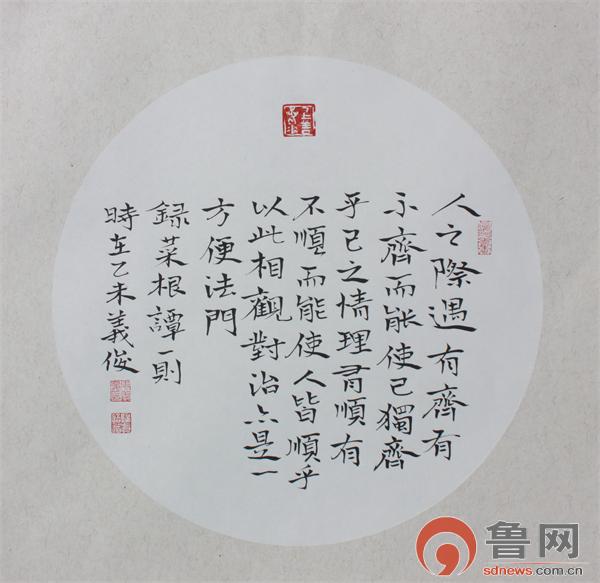 人之際遇有齊有
不齊而能使己獨齊
乎己之情理有順有
不順而能使人皆順乎
以此相觀對治亦是一
方便法門
録菜根譚一則
時在乙未義俊
鲁网
sdnews.com.cn